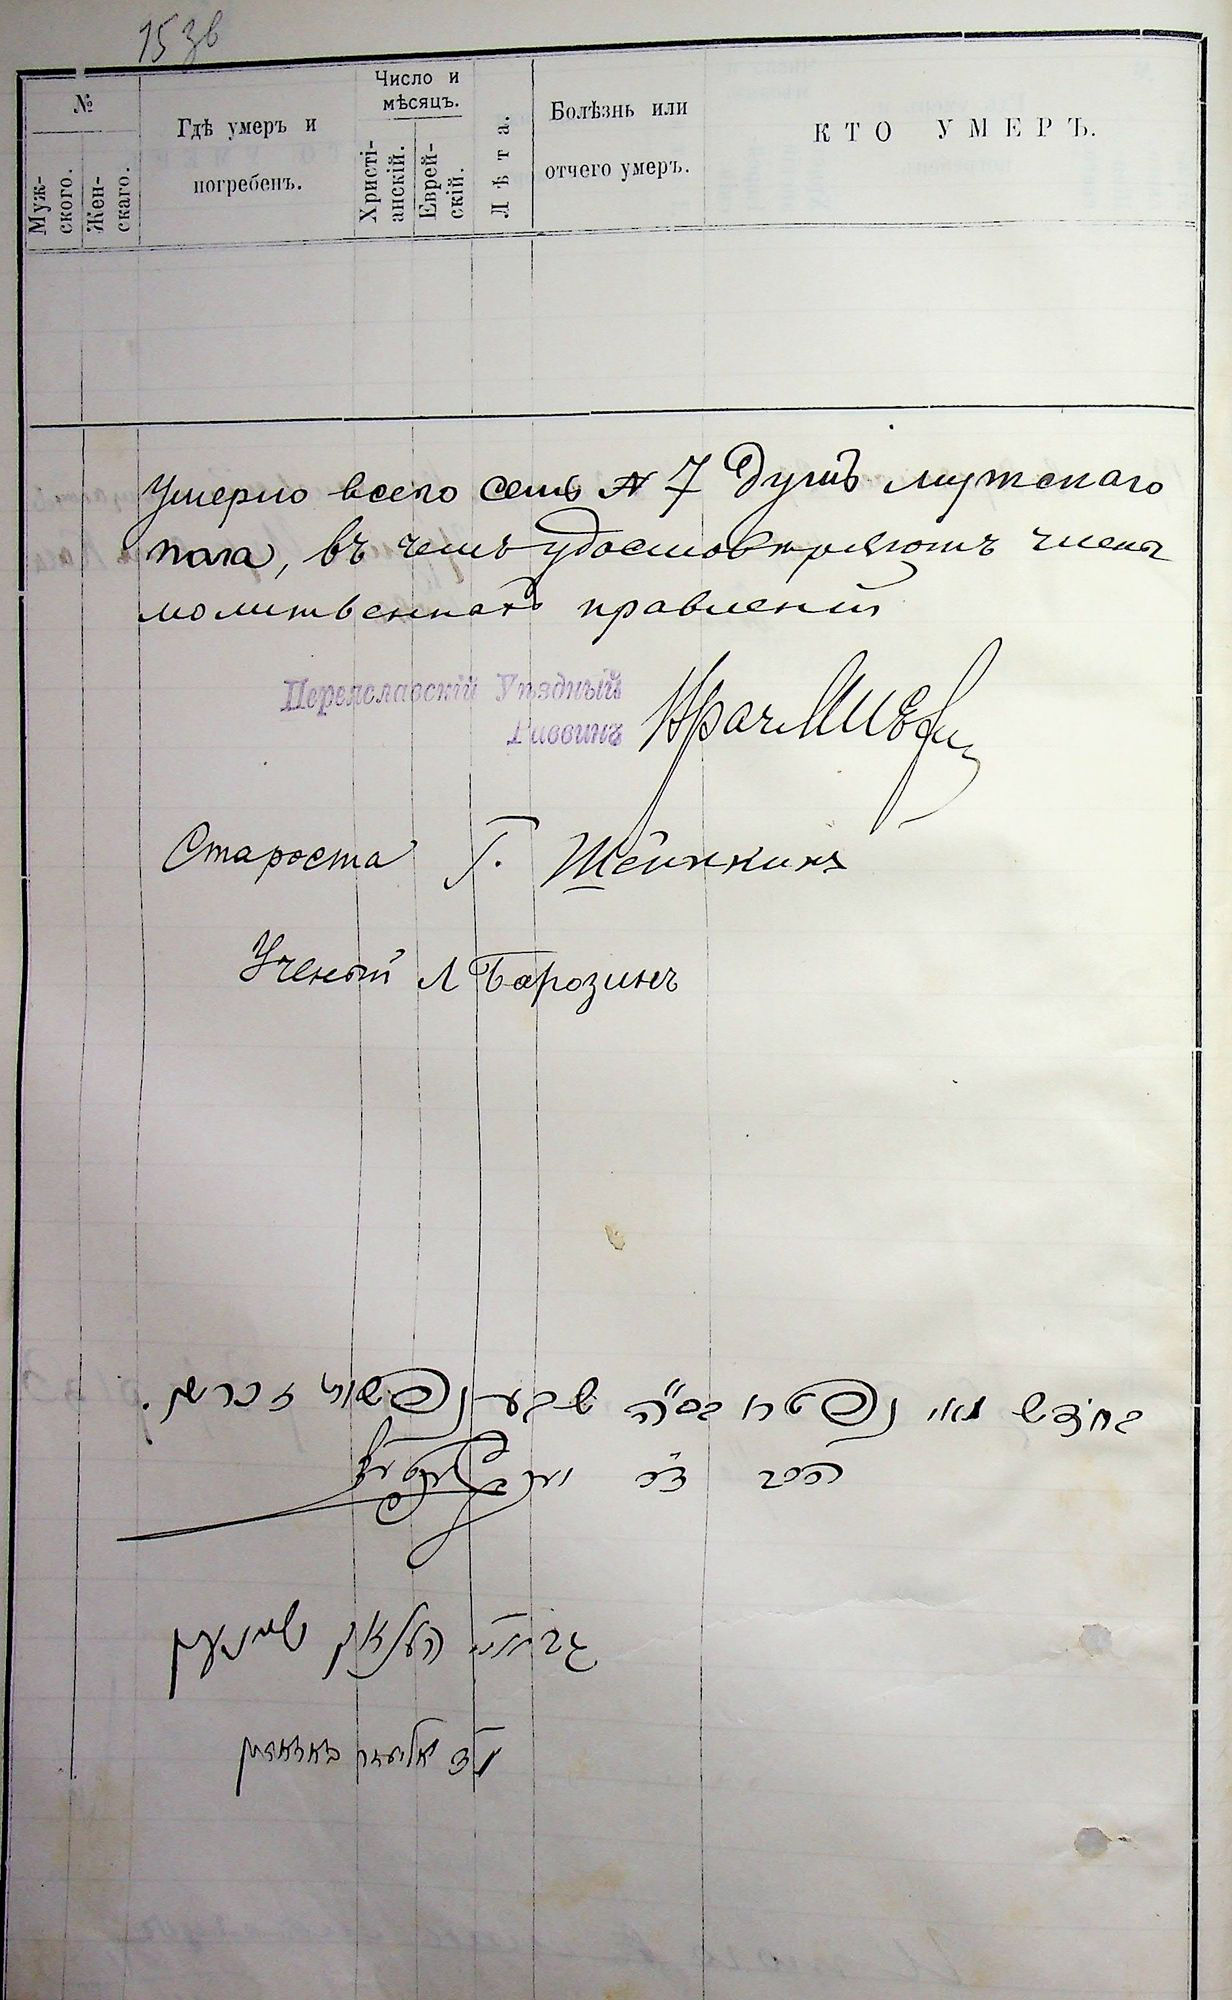 153в
№
Муж-
ского.
Жен-
скаго.
Гдѣ умеръ и
погребенъ.
Число и
мѣсяцъ.
Христі-
анскій.
Еврей-
скій.
Лѣта.
Болѣзнь или
отчего умеръ.
КТО УМЕРЪ.
Умерло всего семь № 7 душъ мужскаго
пола, въ чемъ удостовѣряютъ члены
молитвеннаго правленія
Переяславскій Уѣздный
Раввинъ Врачъ
Староста Г. Шейнкинъ
Ученый Л Барозинъ
בחודש מאי נפטרו בס״ה שבע נפשות זכרים.
הרב ד״ר
שיינקין